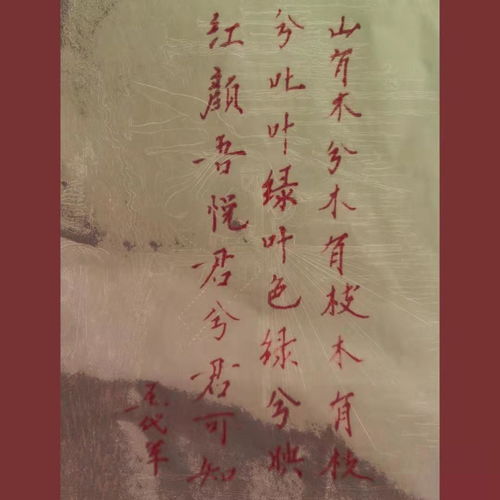 山有木兮木有枝木有枝
兮吐叶绿叶色绿兮映
红顏吾悦君兮君可知
代军